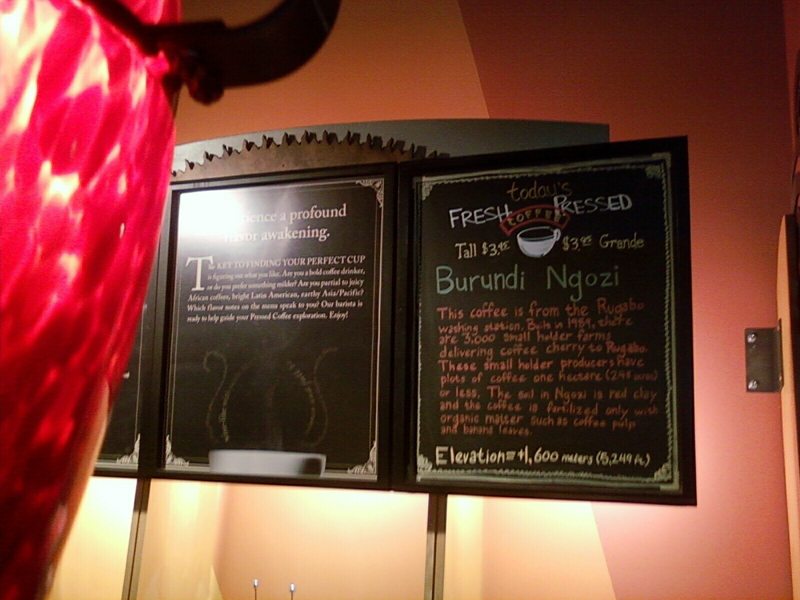 ience a profound
flavor awakening.
The KEY TO FINDING YOUR PERFECT CUP
is figuring out what you like. Are you a bold coffee drinker,
or do you prefer something milder? Are you partial to juicy
African coffees, bright Latin American, earthy Asia/Pacific?
Which flavor notes on the menu speak to you? Our barista is
ready to help guide your Pressed Coffee exploration. Enjoy!
today's
FRESH PRESSED
COFFEE
Tall $3.45 $3.95 Grande
Burundi Ngozi
This coffee is from the Rugabo
washing station. Built in 1989, there
are 3,000 small holder farms
delivering coffee cherry to Rugabo.
These small holder producers have
plots of coffee one hectare (2.48 acres)
or less. The soil in Ngozi is red clay
and the coffee is fertilized only with
organic matter such as coffee pulp
and banana leaves.
Elevation=+1,600 meters (5,249 ft)